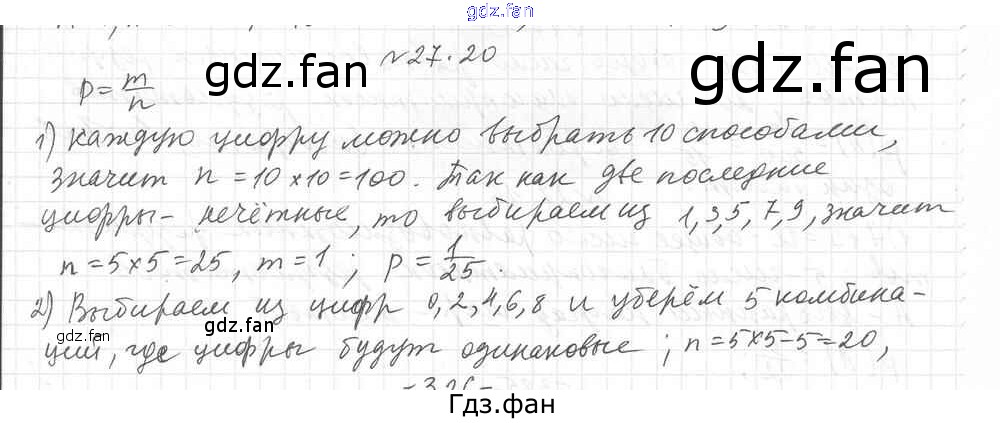 gdz.fan
№27.20
gdz.fan
gdz.fan
p = m/n
1) Каждую цифру можно выбрать 10 способами,
значит n = 10 × 10 = 100. Так как две последние
цифры - нечётные, то выбираем из 1, 3, 5, 7, 9, значит
n = 5 × 5 = 25, m = 1 ; p = 1/25.
2) Выбираем из цифр 0, 2, 4, 6, 8 и уберём 5 комбина-
gdz.fan
gdz.fan
ций, где цифры будут одинаковые ; n = 5×5-5=20,
Гдз.фан